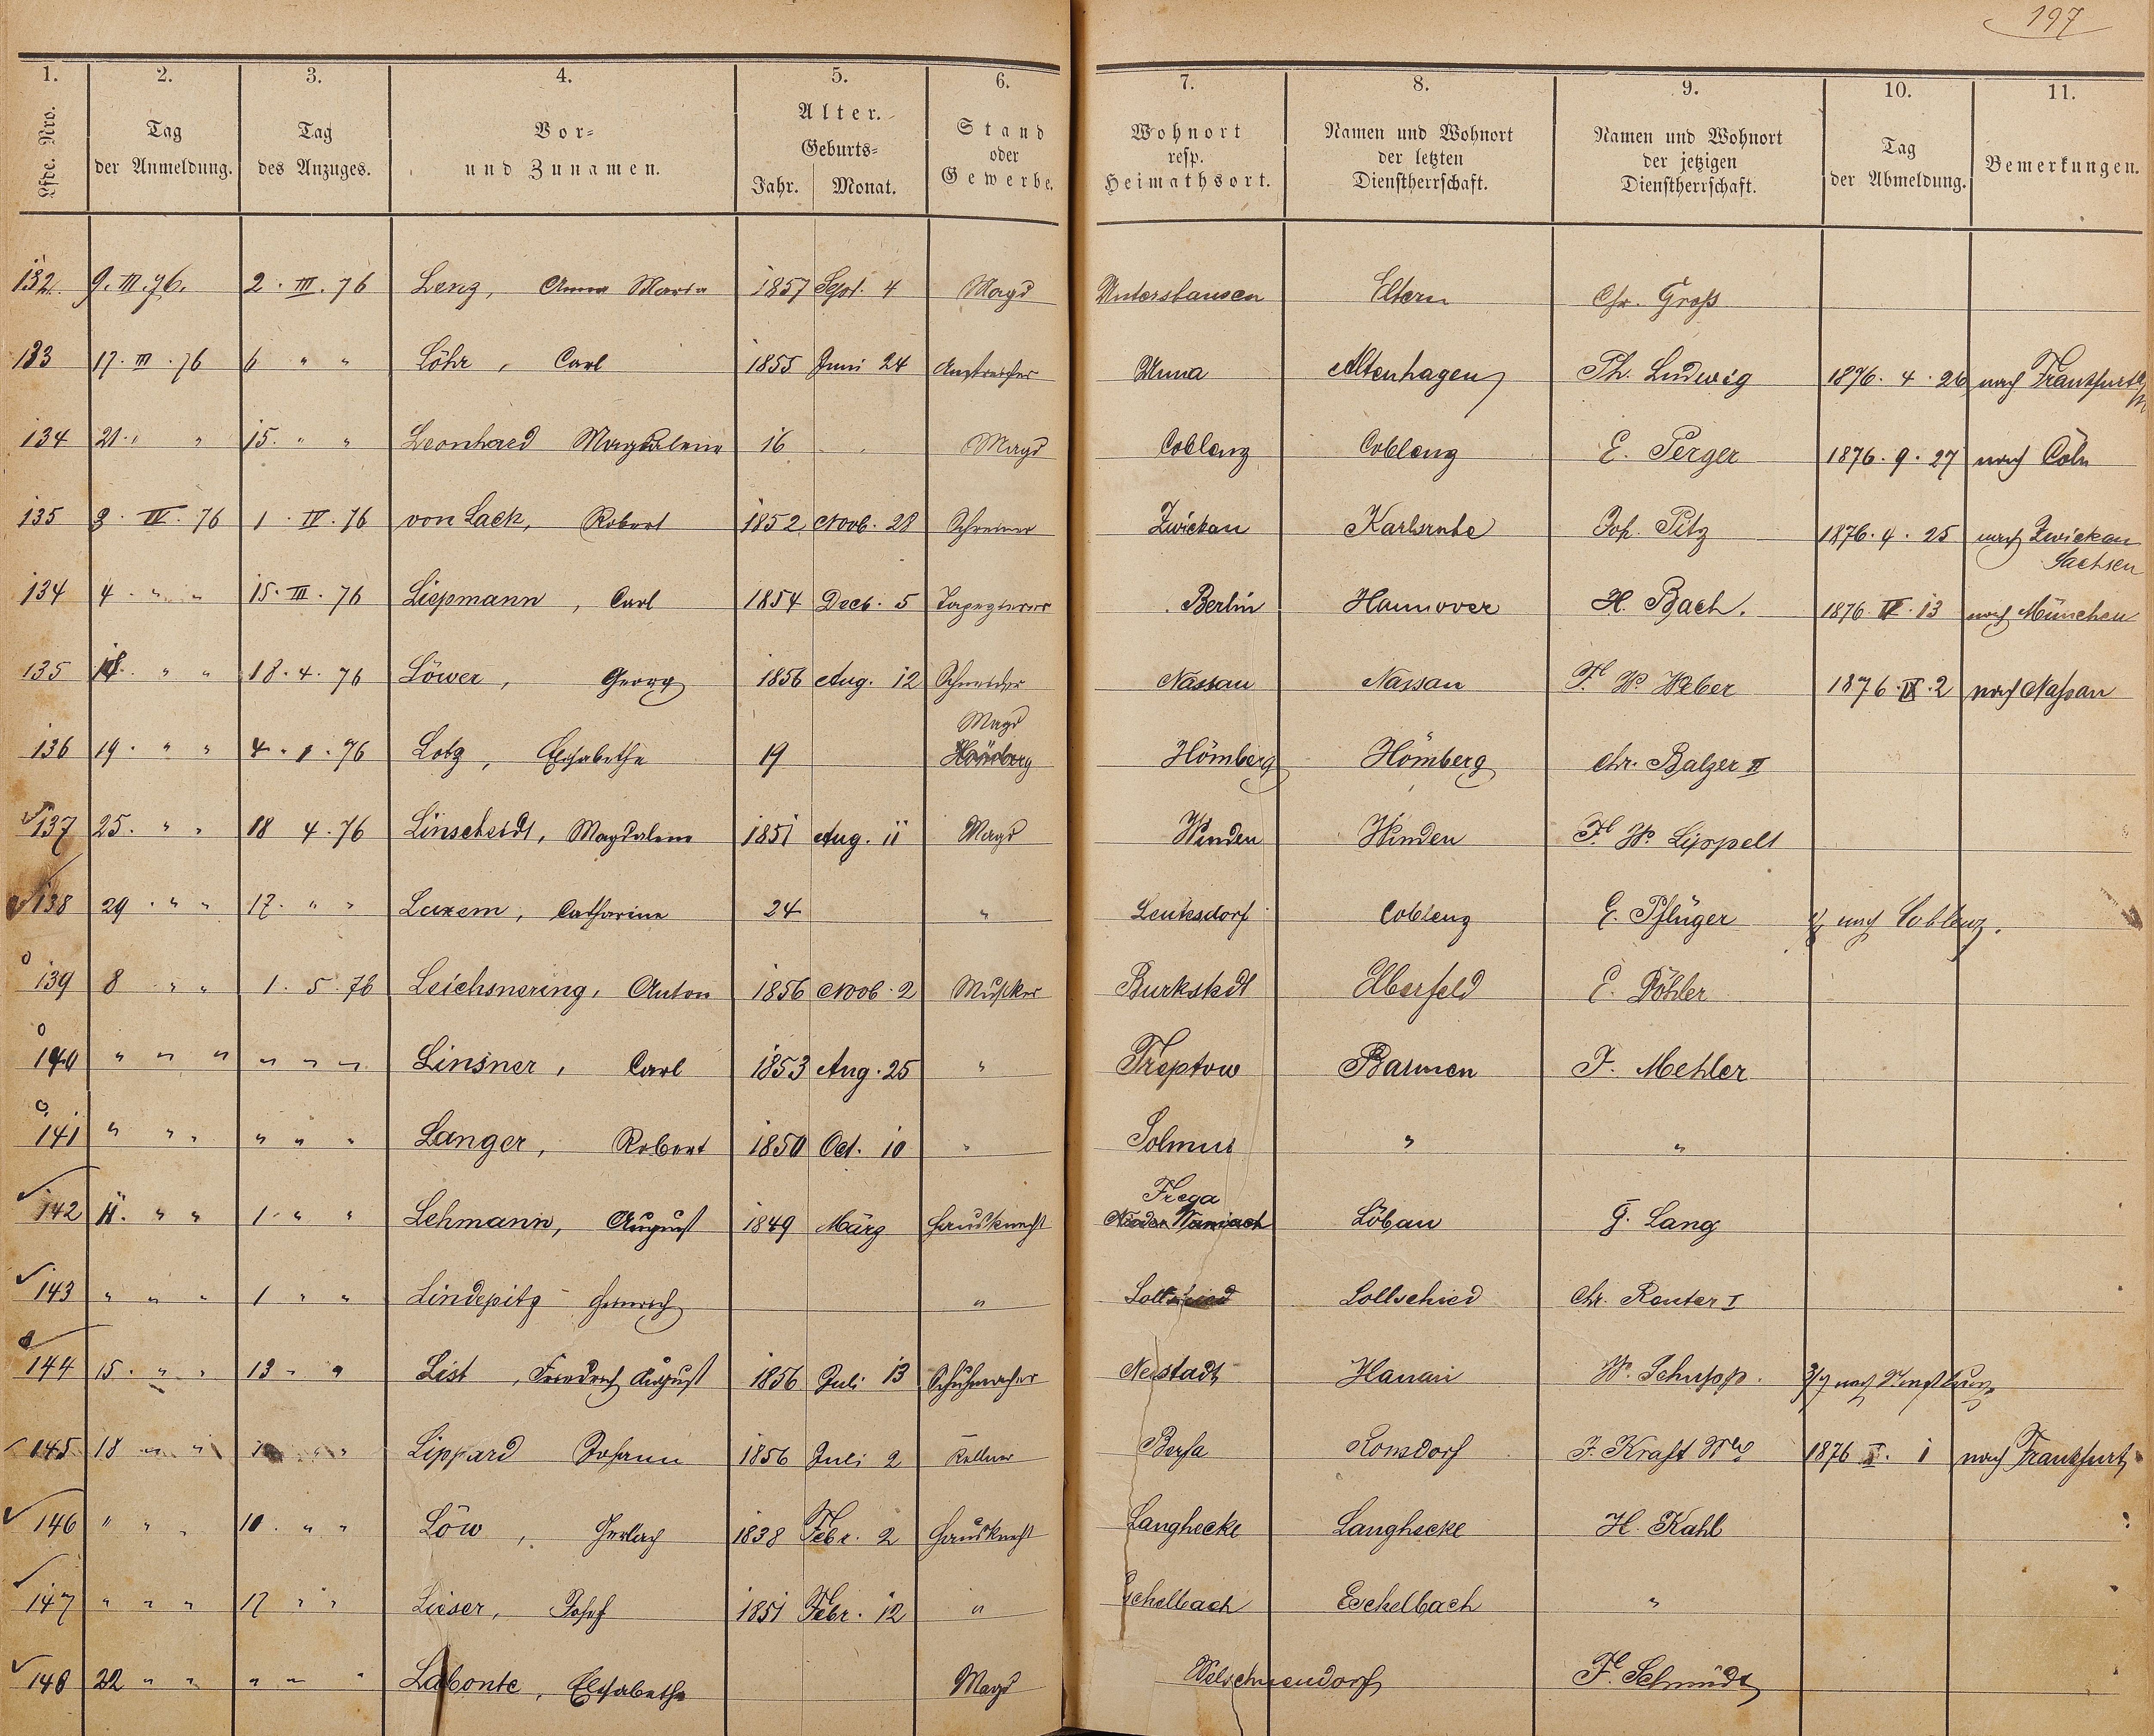 197
1. 2. 3. 4. 5. 6. 7. 8. 9. 10. 11.
Lfde. Nro. Tag der Anmeldung. Tag des Anzuges. Vor- und Zunamen. Alter. Geburts- Jahr. Monat. Stand oder Gewerbe. Wohnort resp. Heimathsort. Namen und Wohnort der letzten Dienstherrschaft. Namen und Wohnort der jetzigen Dienstherrschaft. Tag der Abmeldung. Bemerkungen.
132 9. III. 76. 2. III. 76 Lenz, Anna Maria 1857 Sept. 4 Magd Untershausen Eltern Chr. Groß
133 17. III. 76 6 " " Löhr, Carl 1855 Juni 24 Anstreicher Unna Altenhagen Ph. Ludwig 1876. 4. 26 nach Frankfurt a/M
134 21. " " 15. " " Leonhard Magdalena 16 Magd Coblenz Coblenz E. Perger 1876. 9. 27 nach Cöln
135 3. IV. 76 1. IV. 76 von Lack, Robert 1852 Novb. 28 Schreiner Zwickau Karlsruhe Jos. Pitz 1876. 4. 25 nach Zwickau Sachsen
134 4. " " 15. III. 76 Liepmann, Carl 1854 Decb. 5 Tapezierer Berlin Hannover H. Bach. 1876. IV. 13 nach München
135 18. " " 18. 4. 76 Löwer, Georg 1856 Aug. 12 Schneider Nassau Nassau F. W. Weber 1876. IX. 2 nach Nassau
136 19. " " 4. 1. 76 Lotz, Elisabethe 19 Magd Hömberg Hömberg Hömberg Chr. Balzer II
137 25. " " 18 4. 76 Linscheidt, Magdalena 1851 Aug. 11 Magd Winden Winden F. W. Lippelt
138 29. " " 17. " " Luxem, Catharine 24 " Leutesdorf Coblenz E. Pflüger nach Coblenz.
139 8 " " 1. 5. 76 Leichsnering, Anton 1856 Novb. 2 Musiker Burkstedt Elberfeld E. Döhler
140 " " " " " " Linsner, Carl 1853 Aug. 25 " Treptow Barmen F. Mehler
141 " " " " " " Langer, Robert 1850 Oct. 10 " Solmus " "
142 11. " " 1. " " Lehmann, August 1849 März Hausknecht Löbau G. Lang
143 " " " 1 " " Lindepitz Heinrich " Lollschied Chr. Reuter I
144 15. " " 13 " " List, Friedrich August 1856 Juli 13 Schuhmacher Neustadt Hanau W. Schupp. nach
145 18 " " " " Lippard Johann 1856 Juli 2 Kellner Bersa Ronsdorf F. Kraft Ww 1876 X. 1 nach Frankfurt
146 " " " 10. " " Löw, Gerlach 1838 Febr. 2 Hausknecht Langhecke Langhecke H. Kahl
147 " " " 17 " " Lieser, Josef 1851 Febr. 12 " Eschelbach Eschelbach "
148 22 " " " " " Labonte, Elisabethe Magd Welschneudorf F. Schmidt